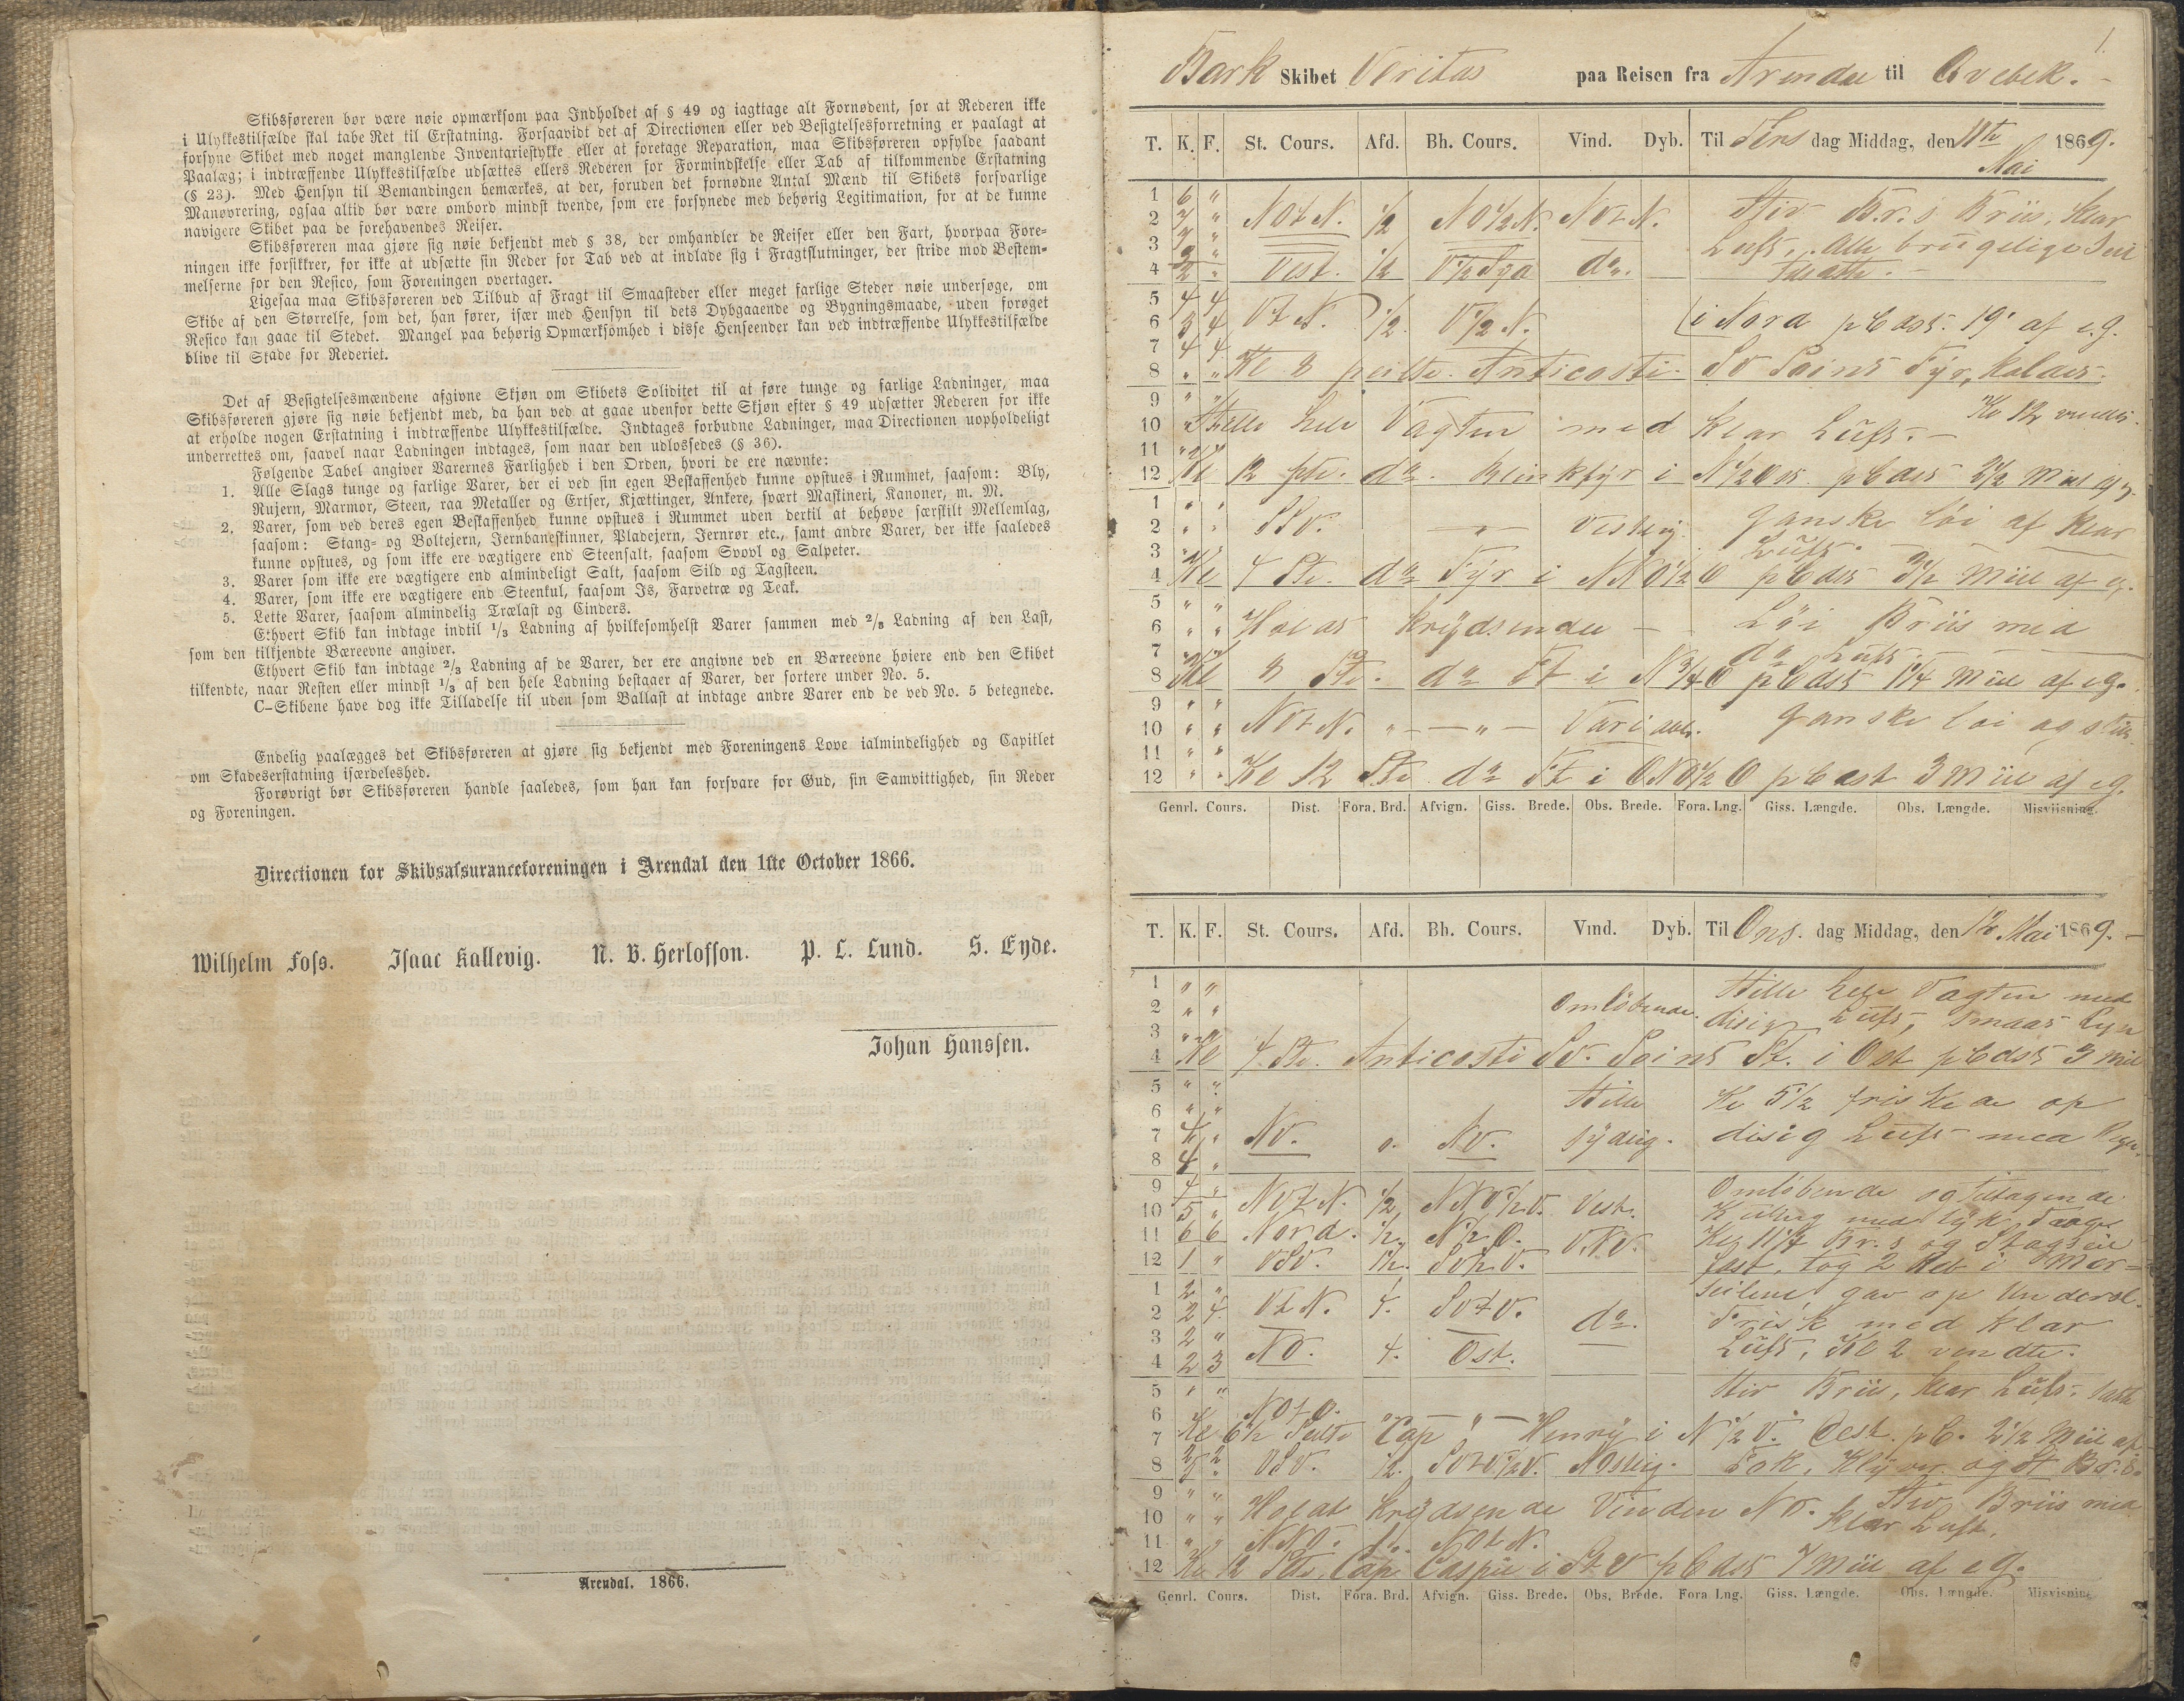 Skibsføreren bør være nøie opmærksom paa Indholdet af § 49 og iagttage alt Fornødent, for at Rederen ikke
i Ulykkestilfælde skal tabe Ret til Erstatning. Forsaavidt det af Directionen eller ved Besigtelsesforretning er paalagt at
forsyne Skibet med noget manglende Inventariestykke eller at foretage Reparation, maa Skibsføreren opfylde saadant
Paalæg; i indtræffende Ulykkestilfælde udsættes ellers Rederen for Formindskelse eller Tab af tilkommende Erstatning
(§ 23). Med Hensyn til Bemandingen bemærkes, at der, foruden det fornødne Antal Mænd til Skibets forsvarlige
Manøvrering, ogsaa altid bør være ombord mindst tvende, som ere forsynede med behørig Legitimation, for at de kunne
navigere Skibet paa de forehavendes Reiser.
Skibsføreren maa gjøre sig nøie bekjendt med § 38, der omhandler de Reiser eller den Fart, hvorpaa Fore-
ningen ikke forsikkrer, for ikke at udsætte sin Reder for Tab ved at indlade sig i Fragtslutninger, der stride mod Bestem-
melserne for den Resico, som Foreningen overtager.
Ligesaa maa Skibsføreren ved Tilbud af Fragt til Smaasteder eller meget farlige Steder nøie undersøge, om
Skibe af den Størrelse, som det, han fører, især med Hensyn til dets Dybgaaende og Bygningsmaade, uden forøget
Resico kan gaae til Stedet. Mangel paa behørig Opmærksomhed i disse Henseender kan ved indtræffende Ulykkestilfælde
blive til Skade for Rederiet.
Det af Besigtelsesmændene afgivne Skjøn om Skibets Soliditet til at føre tunge og farlige Ladninger, maa
Skibsføreren gjøre sig nøie bekjendt med, da han ved at gaae udenfor dette Skjøn efter § 49 udsætter Rederen for ikke
at erholde nogen Erstatning i indtræffende Ulykkestilfælde. Indtages forbudne Ladninger, maa Directionen uopholdeligt
underrettes om, saavel naar Ladningen indtages, som naar den udlossedes (§ 36).
Følgende Tabel angiver Varernes Farlighed i den Orden, hvori de ere nævnte:
1. Alle Slags tunge og farlige Varer, der ei ved sin egen Beskaffenhed kunne opstues i Rummet, saasom: Bly,
Rujern, Marmor, Steen, raa Metaller og Ertser, Kjættinger, Ankere, svært Maskineri, Kanoner, m. M.
2. Varer, som ved deres egen Beskaffenhed kunne opstues i Rummet uden dertil at behøve særskilt Mellemlag,
saasom: Stang- og Boltejern, Jernbaneskinner, Pladejern, Jernrør etc., samt andre Varer, der ikke saaledes
kunne opstues, og som ikke ere vægtigere end Steensalt, saasom Svovl og Salpeter.
3. Varer som ikke ere vægtigere end almindeligt Salt, saasom Sild og Tagsteen.
4. Varer, som ikke ere vægtigere end Steenkul, saasom Is, Farvetræ og Teak.
5. Lette Varer, saasom almindelig Trælast og Cinders.
Ethvert Skib kan indtage indtil 1/3 Ladning af hvilkesomhelst Varer sammen med 2/3 Ladning af den Last,
som den tilkjendte Bæreevne angiver.
Ethvert Skib kan indtage 2/3 Ladning af de Varer, der ere angivne ved en Bæreevne høiere end den Skibet
tilkendte, naar Resten eller mindst 1/3 af den hele Ladning bestaaer af Varer, der sortere under No. 5.
C-Skibene have dog ikke Tilladelse til uden som Ballast at indtage andre Varer end de ved No. 5 betegnede.
Endelig paalægges det Skibsføreren at gjøre sig bekjendt med Foreningens Love ialmindelighed og Capitlet
om Skadeserstatning isærdeleshed.
Forøvrigt bør Skibsføreren handle saaledes, som han kan forsvare for Gud, sin Samvittighed, sin Reder
og Foreningen.
Directionen for Skibsassuranceforeningen i Arendal den 1ste October 1866.
Wilhelm Foss. Isaac Kallevig. N. B. Herlofson. P. L. Lund. S. Eyde.
Johan Hanssen.
Arendal. 1866.
1.
Bark Skibet Veritas paa Reisen fra Arendal til Qvebek.
T. K. F. St. Cours. Afd. Bh. Cours. Vind. Dyb. Til Tirs dag Middag, den 11te Mai 1869.
1 6 " Stiv Br.s. Briis, klar
2 7 " NOtN. 1/2 NO1/2N. NVtN.
3 7 " Luft, Alle brugelige Seil
4 2 " Vest. 1/2 V1/2Syd do. tilsatte.
5 4 4
6 3 4 VtN. 1/2 V1/2N. i Nord pCds 19' af eg.
7 4 4
8 " " Kl 8 peilte Anticosti SV Point Fyr, holdes.
9 " " Kl 12 vendte.
10 " Stille hele Vagten med klar Luft.
11 " "
12 Kl 12 pte. do. Blinkfyr i N1/2Ost pCds 2 1/2 Miil af eg.
1 " "
2 " " SSV. " Vestlig. ganske løi af klar
3 " " Luft.
4 Kl 4 Pte. do Fyr i NNO1/2O pCds 3 1/2 Miil af eg.
5 " "
6 " " Holdt krydsende Løi Briis med
7 " " do Luft.
8 Kl 8 Pte. do Ft i N3/4O pCds 1 1/4 Miil af eg.
9 " "
10 " " NOtN. " " Variabel. ganske løi og stille.
11 " "
12 " " Kl 12 Pte do Ft i ONO1/2O pCdst 3 Miil af eg.
Genrl. Cours. Dist. Fora. Brd. Afvign. Giss. Brede. Obs. Brede. Fora. Lng. Giss. Længde. Obs. Længde. Misviisning.
T. K. F. St. Cours. Afd. Bh. Cours. Vind. Dyb. Til Ons. dag Middag, den 12 Mai 1869.
1 " " Stille hele Vagten med
2 " " Omløbende. disig Luft, smaat Regn
3 " "
4 Kl 4 Pte. Anticosti SV. Point Ft. i Ost pCdst 3 Miil
5 " "
6 " " Stille Kl 5 1/2 friskede op
7 4 " NV. 0. NV. Sydlig. disig Luft med Regn.
8 4 "
9 4 " Omløbende og tiltagende
10 5 " NVtN. 1/2 NNV1/2V. Vest. Kuling med tyk Taage
11 6 6 Nord. 1/2 N1/2O. VNV. Kl 11 1/4 Br.s og Stagseil
12 1 " VSV. 1 1/2. SV1/2V. fast, tog 2 Reb i Mer-
1 2 " seilene, gav op Undersl.
2 2 4 VtN. 4. SVtV. do. Frisk med klar
3 2 "
4 2 3 NO. 4. Ost. Luft, Kl 2 vendte.
5 " " Stiv Briis, klar Luft. satte
6 NOtO.
7 Kl 6 1/2 Peilte Cap Henry i N1/2V. Dest. pC. 2 1/2 Miil af
8 5 " VSV. 1/2. SVtV1/2V. NOstlig. Fok, Klyver og St Br.s.
9 " " Stiv Briis med
10 " " Holdt krydsende Vinden NO. klar Luft.
11 " " NNO. NOtN.
12 Kl 12 Pte. Cap Caspée i StV pCdst 7 Miil af eg.
Genrl. Cours. Dist. Fora. Brd. Afvign. Giss. Brede. Obs. Brede. Fora Lng. Giss. Længde. Obs. Længde. Misvisning